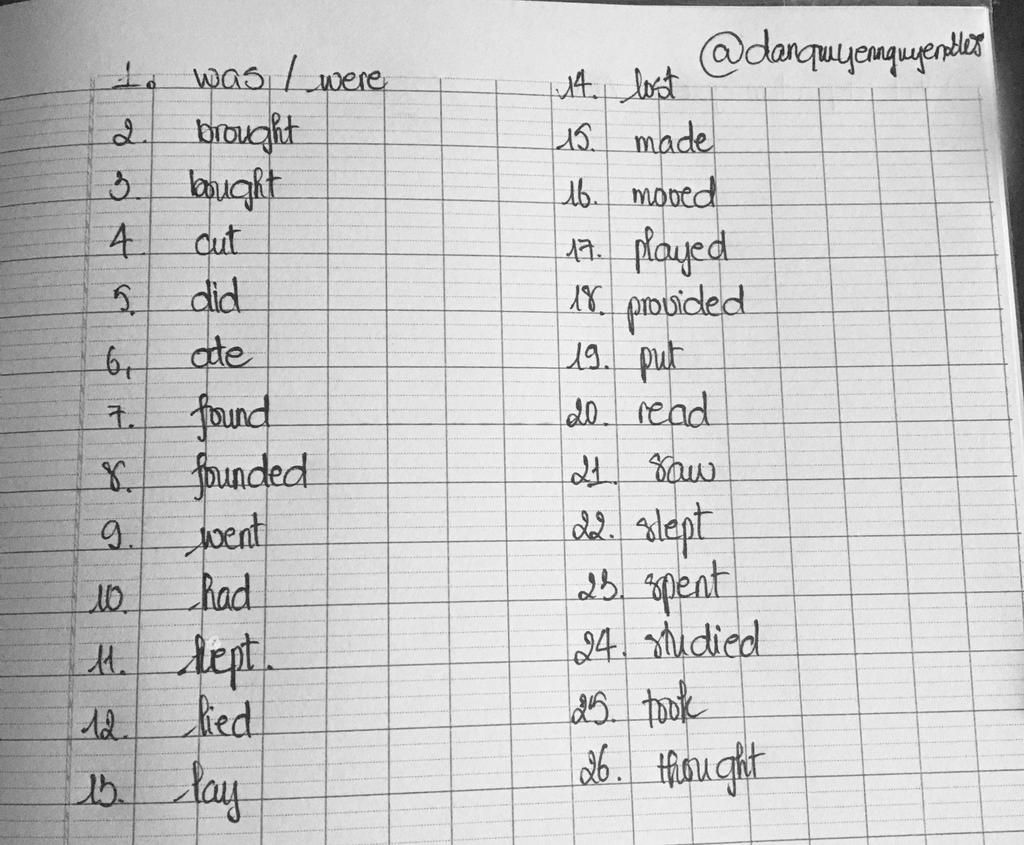 1. was / were
2. brought
3. bought
4 cut
5. did
6, ate
7. found
8. founded
9. went
10. had
11. kept.
12. lied
13. lay
14. lost
15. made
16. moved
17. played
18. provided
19. put
20. read
21. saw
22. slept
23. spent
24. studied
25. took
26. thought